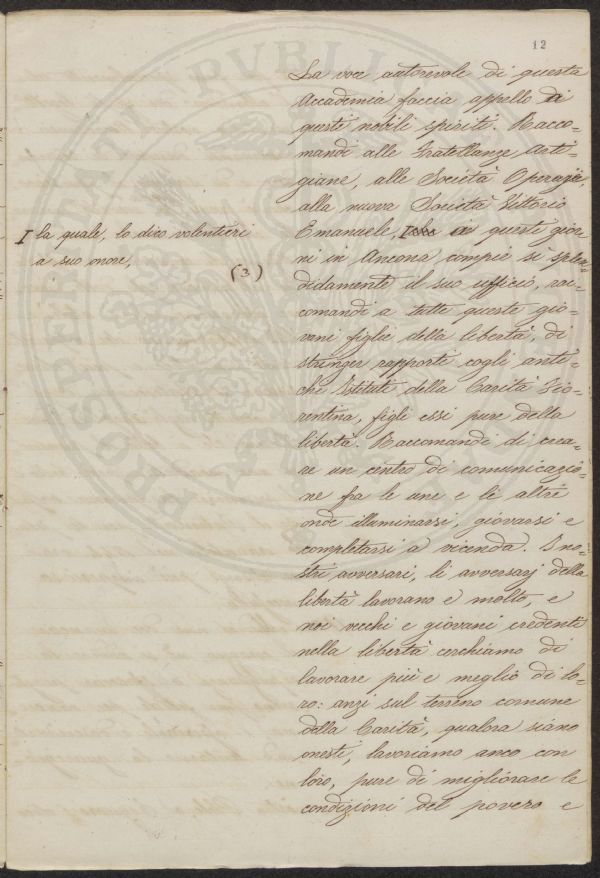 12
La voce autorevole di questa
Accademia faccia appello ai
questi nobili spiriti. Racco=
mandi alle Fratellanze Arti=
giane, alle Società Operaje,
alla nuova Società Vittorio
Emanuele, I a questi gior=
ni in Ancona compiè sì splen=
didamente il suo ufficio, rac=
comandi a tutte queste gio=
vani figlie della libertà, di
stringer rapporti cogli anti=
chi Istituti della Carità Fio=
rentina, figli essi pure della
libertà. Raccomandi di crea=
re un centro di comunicazio=
ne fra le une e li altri
onde illuminarsi, giovarsi e
completarsi a vicenda. I no=
stri avversari, li avversarj della
libertà lavorano e molto, e
noi vecchi e giovani credenti
nella libertà cerchiamo di
lavorare più e meglio di lo=
ro: anzi sul terreno comune
della Carità, qualora siano
onesti, lavoriamo anco con
loro, pure di migliorare le
condizioni del povero e
I la quale, lo dico volentieri
a suo onore,
(3)
PROSPERITATI PVBLICAE